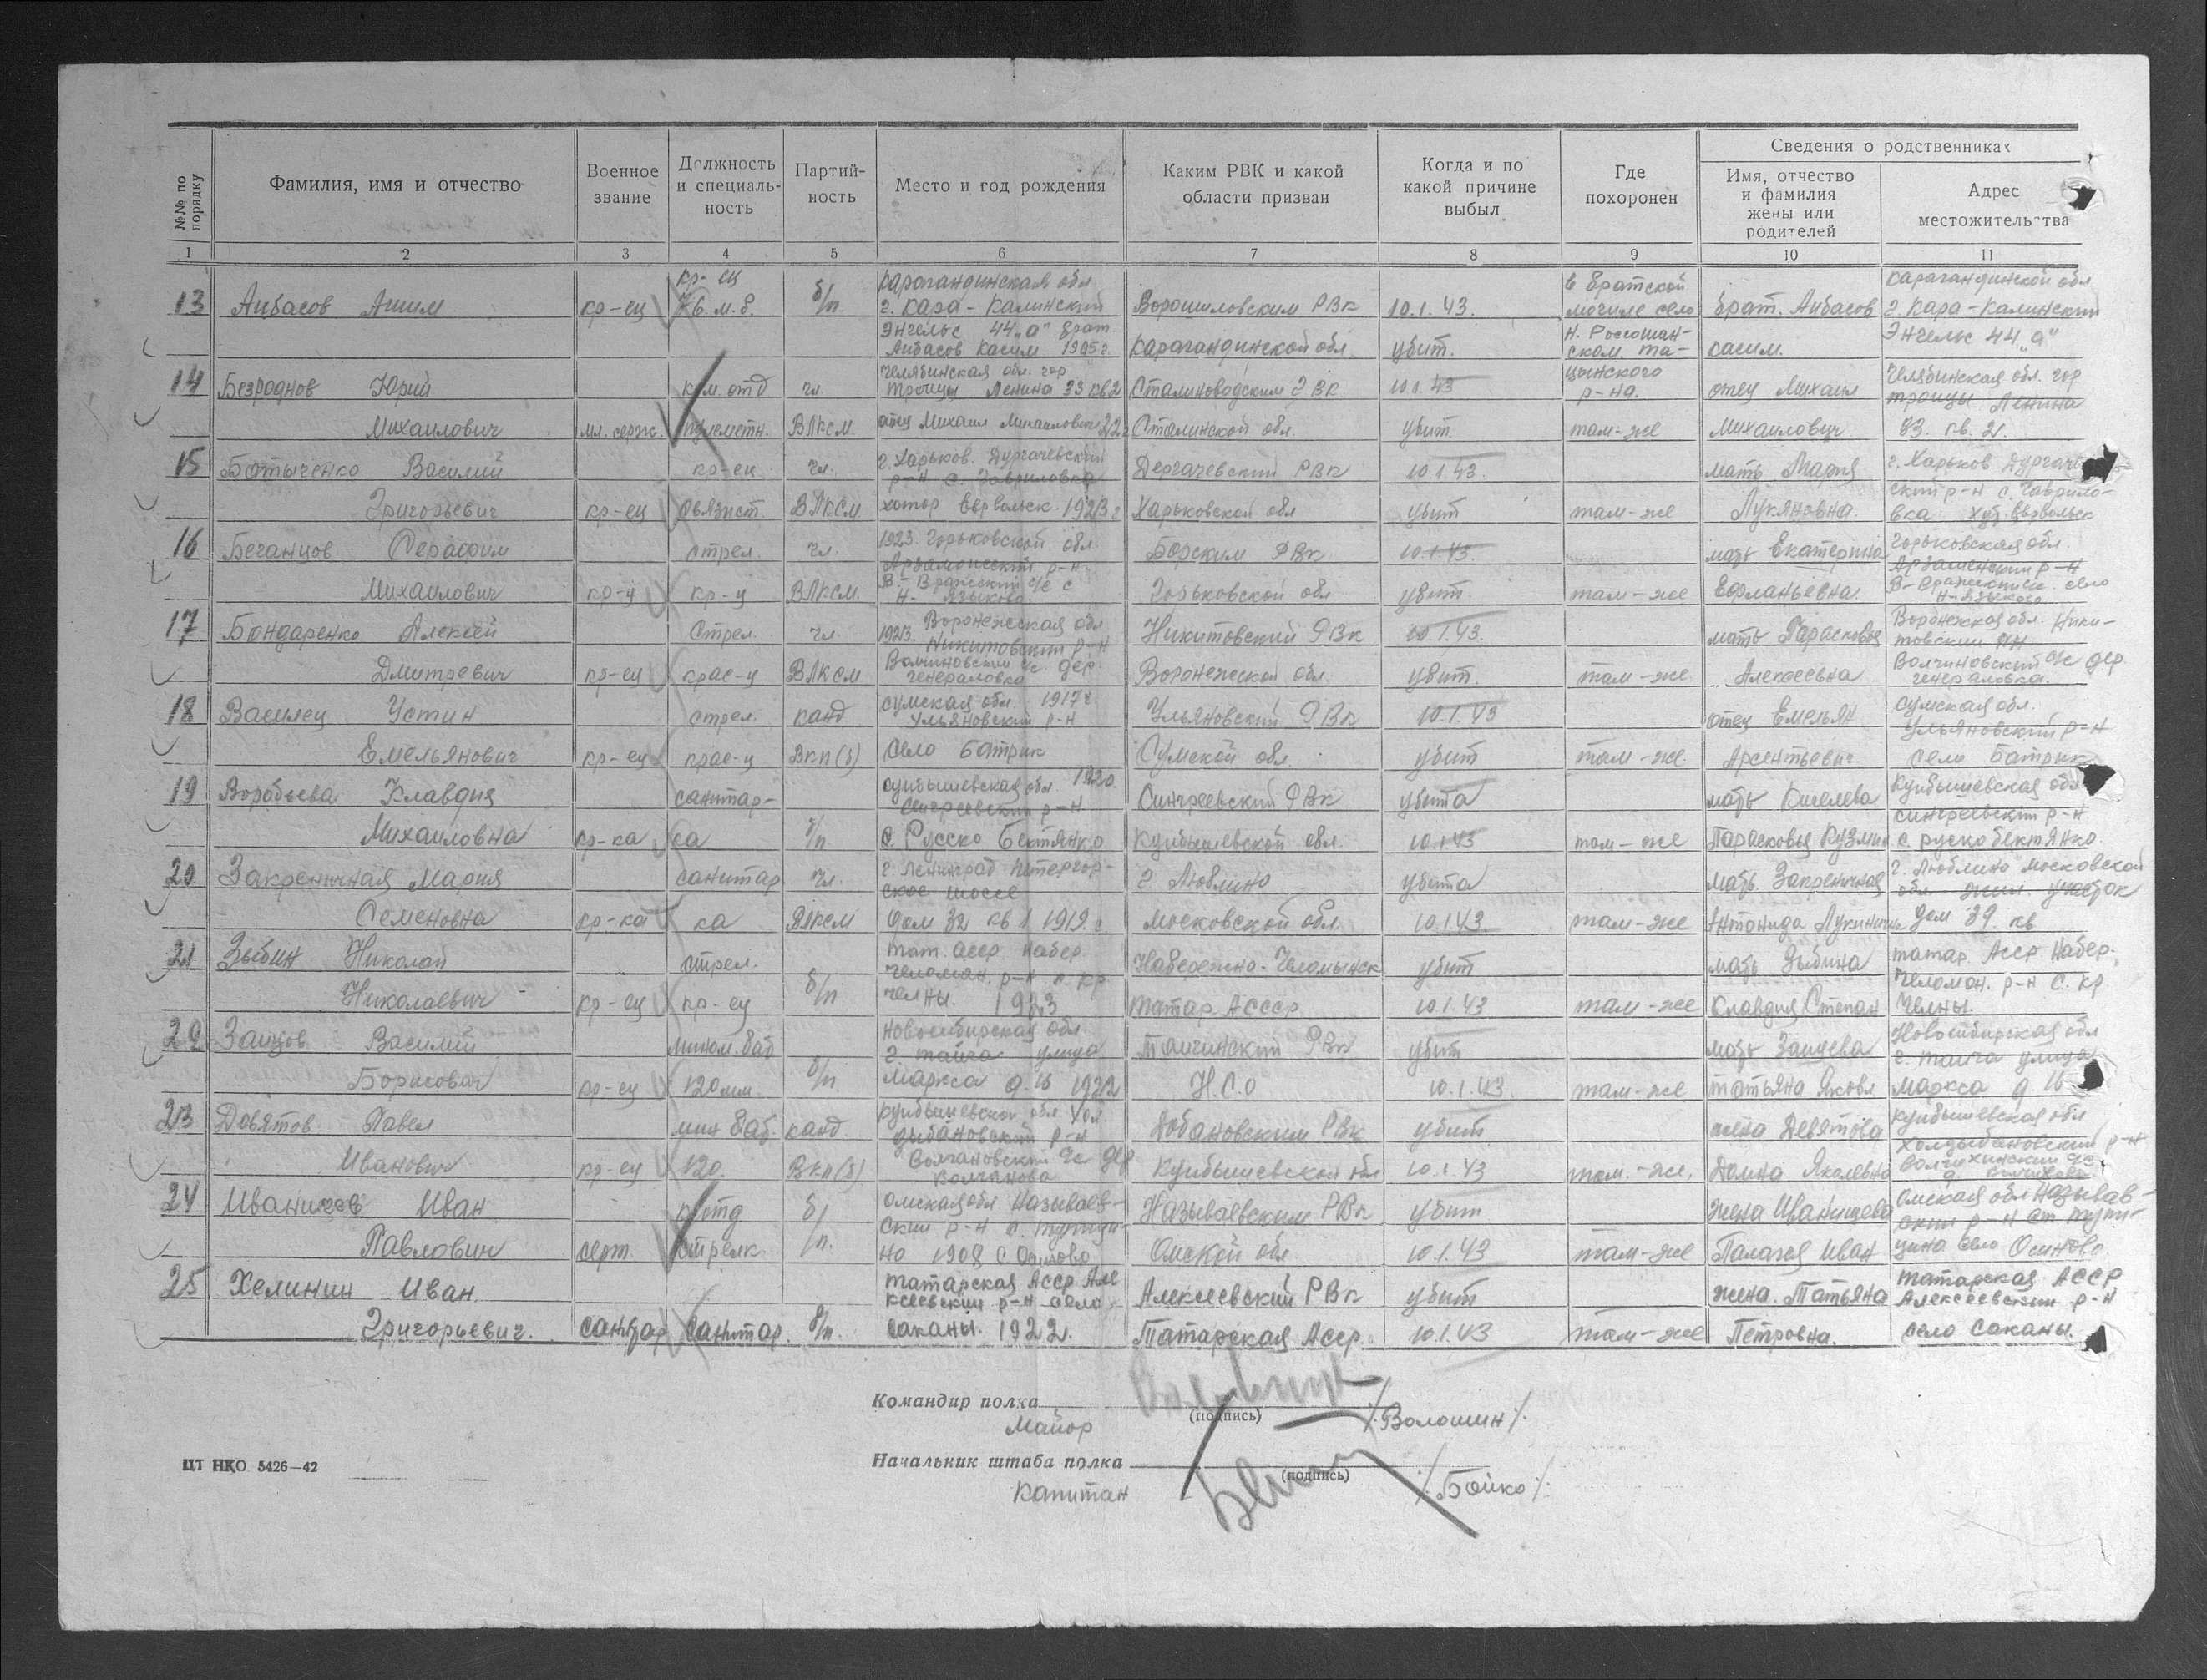 №№ по порядку
Фамилия, имя и отчество
Военное звание
Должность и специальность
Партийность
Место и год рождения
Каким РВК и какой области призван
Когда и по какой причине выбыл
Где похоронен
Сведения о родственниках
Имя, отчество и фамилия жены или родителей
Адрес местожительства
1 2 3 4 5 6 7 8 9 10 11
кр-ец карагандинская обл. в братской карагандинской обл
13 Аибасов Ашим кр-ец 76 м.б. б/п. г. Кара-Калинский Ворошиловским РВК 10.1.43. могиле село брат. Аибасов г. Кара-Калинский
Энгельс 44 „а" брат. Н. Россошан- Энгельс 44 „а"
Аибасов Касим 1905 г. карагандинской обл. убит. ском Та- касим.
Челябинская обл. гор цынского Челябинская обл. гор
14 Безроднов Юрий ком. отд чл. троицк Ленина 33 кв 2 Сталинозодским РВК 10.1.43 р-на. отец Михаил троицы Ленина
Михаилович мл. серж. пулеметн. ВЛКСМ отец Михаил Михаилович 22 г Сталинской обл. убит. там-же Михаилович 83. кв. 2.
15 Батыченко Василий кр-ец чл. г. Харьков. Дургачевский Дергачевский РВК 10.1.43. мать Мария г. Харьков
р-н с. Гавриловка
Григорьевич кр-ец связист. ВЛКСМ хатор 1923 г Харьковской обл убит там-же Лукяновна. ский р-н с. Гаврило-
вка
16 Беганцов Серафим стрел. чл. 1923. Горьковской обл Борским РВК 10.1.43. мать Екатерина Горьковская обл.
р-н р-н
Михаилович кр-ц кр-ц ВЛКСМ. В.- с/с с Горьковской обл убит. там-же село
Н-Языково Н-Языково
17 Бондаренко Алексей Стрел. чл. 1923. Воронежская обл Никитовский РВК 10.1.43. мать Парасковья Воронежская обл. Ники-
Никитовский р-н товский р-н
Дмитревич кр-ец крас-ц ВЛКСМ с/с. дер. Воронежской обл. убит. там-же Алексеевна Волчиновский с/с дер
генераловка генераловка.
18 Василец Устин стрел. канд Сумская обл. 1917 г Ульяновский РВК 10.1.43 отец Емельян Сумская обл.
Ульяновский р-н Ульяновский р-н
Емельянович кр-ец крас-ц ВКП(б) село Батрик Сумской обл. убит там-же Арсентьевич. село Батрик
19 Воробьева Клавдия санитар- куйбышевская обл 1920 Сингреевский РВК убита мать Киселева Куйбышевская обл
р-н сингреевский р-н
Михаиловна кр-ка ка б/п с Русско Бектянко Куйбышевской обл. 10.1.43 там-же Парасковья Кузмин с. руско бектянко.
20 Закреничная Мария санитар чл. г. Ленинград петергор- г. Люблино убита мать. Закреничная г. Люблино московской
ское шоссе обл. жил. участок
Семеновна кр-ка ка ВЛКСМ дом 32 кв 1 1919. г московской обл. 10.1.43. там-же Антонида Лукинична дом 39. кв
21 Зыбин Николай стрел. тат. Асср набер Набережно-Челнынск убит мать Зыбина татар. Асср Набер.
челоман. р-н п. кр Челоман. р-н с. кр
Николаевич кр-ец кр-ец б/п челны. 1923 татар АССср 10.1.43 там-же Клавдия Степан Челны.
22 Заицов Василий мином. бат Новосибирская обл Таигинский РВК убит мать Заицева Новосибирская обл
г. тайга улица г. тайга улица
Борисович кр-ец 120 мм. б/п Маркса д. 16 1922 Н.С.О 10.1.43. там-же татьяна Яковл маркса д 16
23 Девятов Павел мин бат. канд куйбышевской обл. Хол. Добановским РВК убит жена Девятова куйбышевская обл
дыбановский р-н Холдыбановский р-н
Иванович кр-ец 120. ВКП(б) Волчановский с/с дер Куйбышевской обл 10.1.43 там.-же. Домна Яковлевна
24 Иванищев Иван к. отд б/ омская обл Называев- Называевским РВК убит жена Иванищева Омская обл Называв-
ский р-н с. ский р-н ст.
Павлович серж. стрелк. /п. но 1908 с Осиново Омской обл 10.1.43 там-же Палагея Иван село Осиново
25 Хелинин Иван татарская Асср Але Алексеевский РВК убит жена. Татьяна татарская АССР
ксеевский р-н село Алексеевский р-н
Григорьевич. санитар санитар. б/п. саканы. 1922г. Татарская Асср. 10.1.43 там-же Петровна. село саканы.
Командир полка
Майор
(подпись)
/. Волошин /.
Начальник штаба полка
Капитан
(подпись)
/. Бойко /.
ЦТ НКО 5426—42